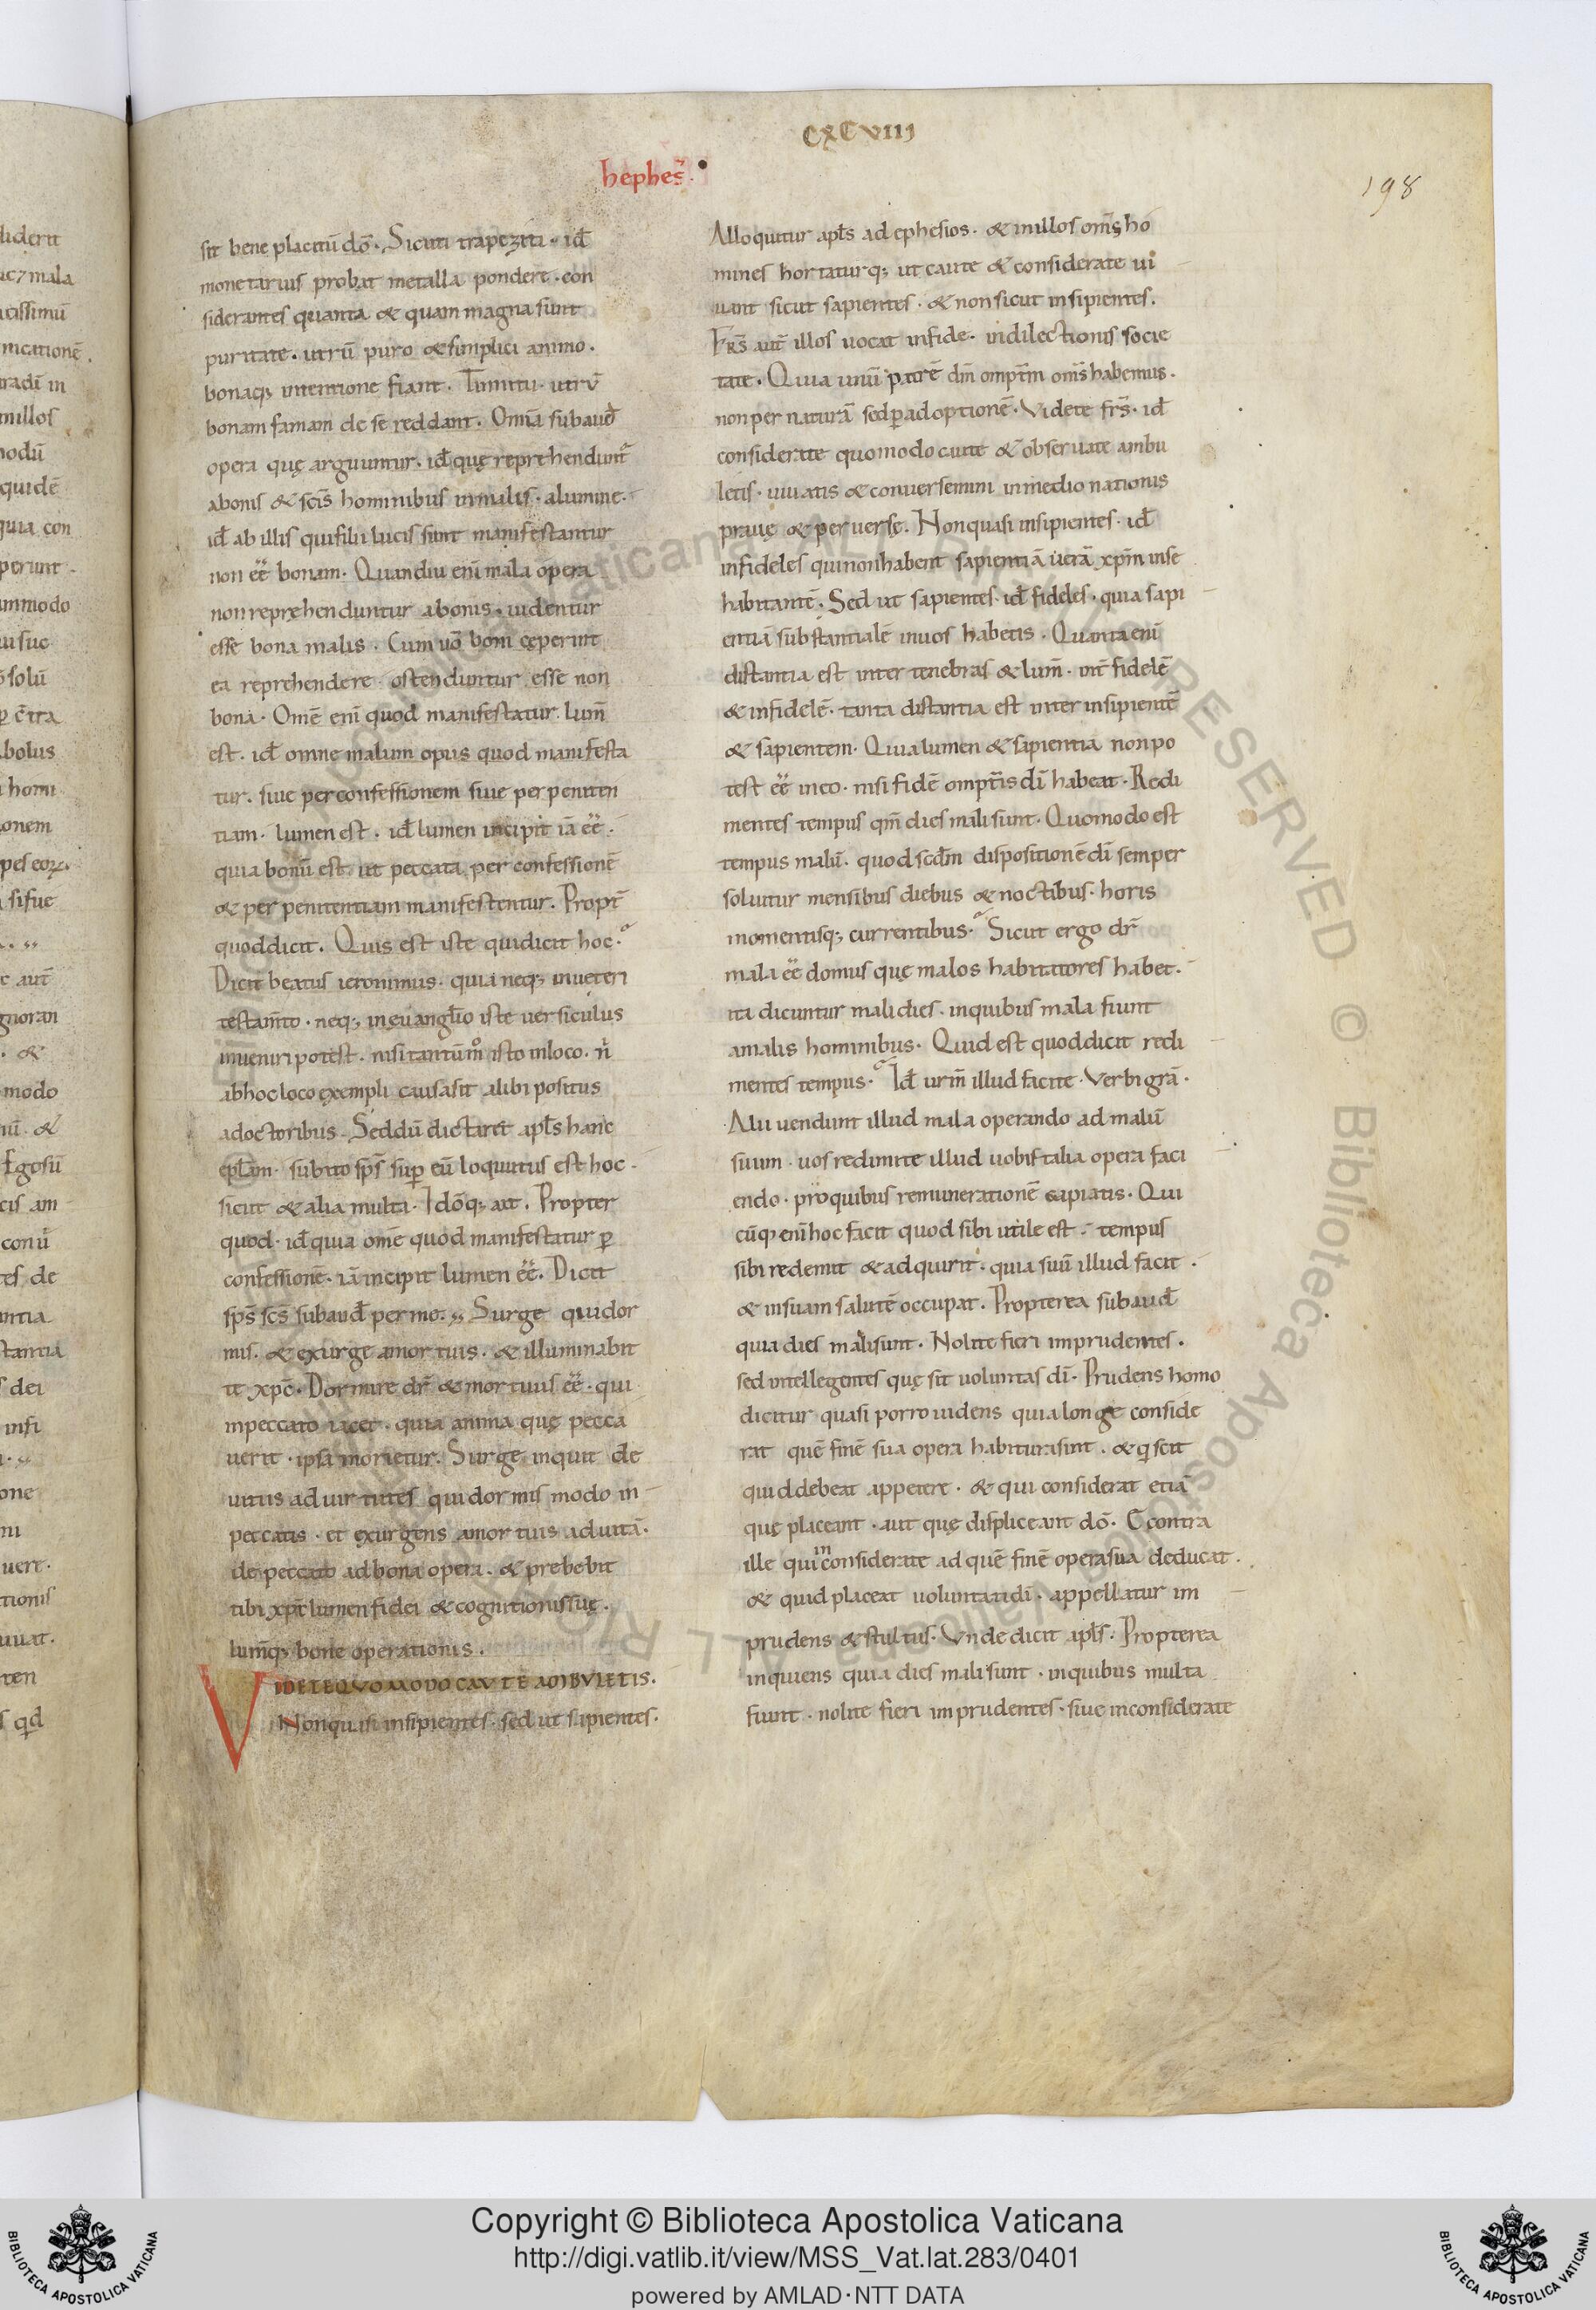 CXCVIII
hephes̄.
198
sit bene placitū dō. Sicuti trapeziti. id̄
monetarius probat metalla pondere. con
siderantes quanta & quam magna sunt
puritate. utrū puro & simplici animo.
bonaq; intentione fiant. Tinnitu. utrū
bonam famam de se reddant. Omīa subaud̄
opera quę arguuntur. id̄ quę reprehendunt̄
a bonis & sc̄is hominibus in malis. a lumine.
id̄ ab illis qui filii lucis sunt manifestantur
non eē bonam. Quandiu enī mala opera
non repręhenduntur a bonis. uidentur
esse bona malis. Cum uō boni cęperint
ea reprehendere ostenduntur esse non
bona. Omē enī quod manifestatur. lum̄
est. id̄ omne malum opus quod manifesta
tur. siue per confessionem siue per peniten
tiam. lumen est. id̄ lumen incipit iā eē.
quia bonū est. ut peccata per confessionē
& per penitentiam manifestentur. Propt̄
quod dicit. Quis est iste qui dicit hoc.
Dicit beatus ieronimus. quia neq; in ueteri
testam̄to. neq; in euangl̄io iste uersiculus
inueniri potest. nisi tantūm̊ isto in loco. n̄
ab hoc loco exempli causa sit alibi positus
a doctoribus. Sed dū dictaret apl̄s hanc
epl̄am. subito sp̄s sup̱ eū loquutus est hoc.
sicut & alia multa. Idōq; ait. Propter
quod. id̄ quia omē quod manifestatur p̱
confessionē. iā incipit lumen eē. Dicit
sp̄s sc̄s subaud̄ per me. Surge qui dor
mis. & exurge a mortuis. & illuminabit
te xp̄c. Dormire dr̄ & mortuus eē. qui
in peccato iacet. quia anima quę pecca
uerit. ipsa morietur. Surge inquit de
uitiis ad uirtutes qui dormis modo in
peccatis. et exurgens a mortuis ad uitā.
de peccato ad bona opera. & prebebit
tibi xp̄c lumen fidei & cognitionis suę.
lum̄q; bone operationis.
VIDETE QVOMODO CAVTE AMBVLETIS.
Non quasi insipientes. sed ut sapientes.
Alloquitur apl̄s ad ephesios. & in illos om̄s ho
mines hortaturq; ut caute & considerate ui
uant sicut sapientes. & non sicut insipientes.
Fr̄s aut̄ illos uocat in fide. in dilectionis socie
tate. Quia unū patrē dm̄ ompt̄m om̄s habemus.
non per naturā sed p̱ adoptionē. Videte fr̄s. id̄
considerate quomodo caute & obseruate ambu
letis. uiuatis & conuersemini in medio nationis
prauę & peruersę. Non quasi insipientes. id̄
infideles qui non habent sapientiā uerā xp̄m in se
habitantē. Sed ut sapientes. id̄ fideles. quia sapi
entiā substantialē in uos habetis. Quanta enī
distantia est inter tenebras & lum̄. int̄ fidelē
& infidelē. tanta distantia est inter insipientē
& sapientem. Quia lumen & sapientia non po
test eē in eo. nisi fidē ompt̄is dī habeat. Redi
mentes tempus qm̄ dies mali sunt. Quomodo est
tempus malū. quod scd̄m dispositionē dī semper
soluitur mensibus diebus & noctibus. horis
momentisq; currentibus. Sicut ergo dr̄
mala eē domus quę malos habitatores habet.
ita dicuntur mali dies. in quibus mala fiunt
a malis hominibus. Quid est quod dicit redi
mentes tempus. Id̄ urm̄ illud facite. Verbi grā.
Alii uendunt illud mala operando ad malū
suum. uos redimite illud uobis talia opera faci
endo. pro quibus remunerationē capiatis. Qui
cūq; enī hoc facit quod sibi utile est. tempus
sibi redemit & adquirit. quia suū illud facit.
& in suam salutē occupat. Propterea subaud̄
quia dies mali sunt. Nolite fieri imprudentes.
sed intellegentes quę sit uoluntas dī. Prudens homo
dicitur quasi porro uidens quia longe conside
rat quē finē sua opera habitura sint. & q̱ scit
quid debeat appetere. & qui considerat etiā
quę placeant. aut quę displiceant dō. E contra
ille qui inconsiderate ad quē finē opera sua deducat.
& quid placeat uoluntati dī. appellatur im
prudens & stultus. Vnde dicit apl̄s. Propterea
inquiens quia dies mali sunt. in quibus multa
fiunt. nolite fieri imprudentes. siue inconsiderate
Copyright © Biblioteca Apostolica Vaticana
http://digi.vatlib.it/view/MSS_Vat.lat.283/0401
powered by AMLAD·NTT DATA
BIBLIOTECA APOSTOLICA VATICANA
BIBLIOTECA APOSTOLICA VATICANA